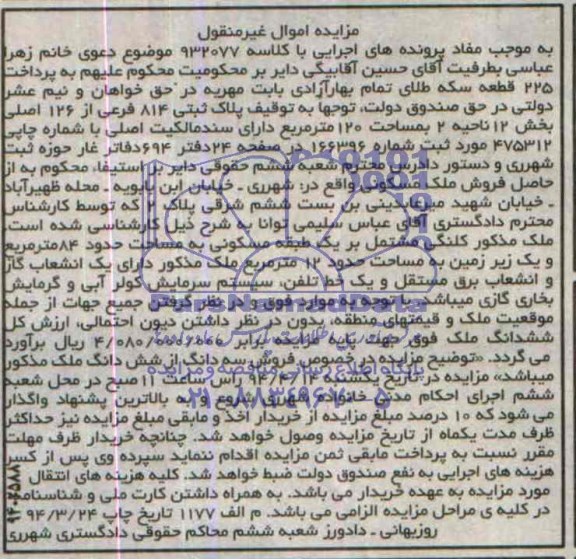 مزایده اموال غیرمنقول
به موجب مفاد پرونده های اجرایی با کلاسه ۹۳۲۰۷۷ موضوع دعوی خانم زهرا
عباسی بطرفیت آقای حسین آقابیگی دایر بر محکومیت محکوم علیهم به پرداخت
۲۲۵ قطعه سکه طلای تمام بهارآزادی بابت مهریه در حق خواهان و نیم عشر
دولتی در حق صندوق دولت، توجها به توقیف پلاک ثبتی ۸۱۴ فرعی از ۱۲۶ اصلی
بخش ۱۲ ناحیه ۲ بمساحت ۱۲۰ مترمربع دارای سندمالکیت اصلی با شماره چاپی
۴۷۵۳۱۲ مورد ثبت شماره ۱۶۶۳۹۶ در صفحه ۲۴دفتر ۶۹۴دفاتر غار حوزه ثبت
شهرری و دستور دادرس محترم شعبه ششم حقوقی دایر بر استیفاء محکوم به از
حاصل فروش ملک مسکونی واقع در: شهرری ـ خیابان ابن بابویه ـ محله ظهیرآباد
ـ خیابان شهید میرعابدینی بن بست ششم شرقی پلاک ۲ که توسط کارشناس
محترم دادگستری آقای عباس سلیمی توانا به شرح ذیل کارشناسی شده است.
ملک مذکور کلنگی مشتمل بر یک طبقه مسکونی به مساحت حدود ۸۴مترمربع
و یک زیر زمین به مساحت حدود ۱۲ مترمربع ملک مذکور دارای یک انشعاب گاز
و انشعاب برق مستقل و یک خط تلفن، سیستم سرمایش کولر آبی و گرمایش
بخاری گازی میباشد. با توجه به موارد فوق و در نظر گرفتن جمیع جهات از جمله
موقعیت ملک و قیمتهای منطقه، بدون در نظر داشتن دیون احتمالی، ارزش کل
ششدانگ ملک فوق جهت پایه مزایده برابر ۴/۰۸۰/۰۰۰/۰۰۰ ریال برآورد
می گردد. «توضیح مزایده در خصوص فروش سه دانگ از شش دانگ ملک مذکور
میباشد» مزایده در تاریخ یکشنبه ۹۴/۴/۱۴ راس ساعت ۱۱ صبح در محل شعبه
ششم اجرای احکام مدنی خانواده شهرری شروع و به بالاترین پیشنهاد واگذار
می شود که ۱۰ درصد مبلغ مزایده از خریدار اخذ و مابقی مبلغ مزایده نیز حداکثر
ظرف مدت یکماه از تاریخ مزایده وصول خواهد شد. چنانچه خریدار ظرف مهلت
مقرر نسبت به پرداخت مابقی ثمن مزایده اقدام ننماید سپرده وی پس از کسر
هزینه های اجرایی به نفع صندوق دولت ضبط خواهد شد. کلیه هزینه های انتقال
مورد مزایده به عهده خریدار می باشد. به همراه داشتن کارت ملی و شناسنامه
در کلیه ی مراحل مزایده الزامی می باشد. م الف ۱۱۷۷ تاریخ چاپ ۹۴/۳/۲۴
روزبهانی ـ دادورز شعبه ششم محاکم حقوقی دادگستری شهرری
ParsNamadData
پایگاه اطلاع رسانی مناقصه و مزایده